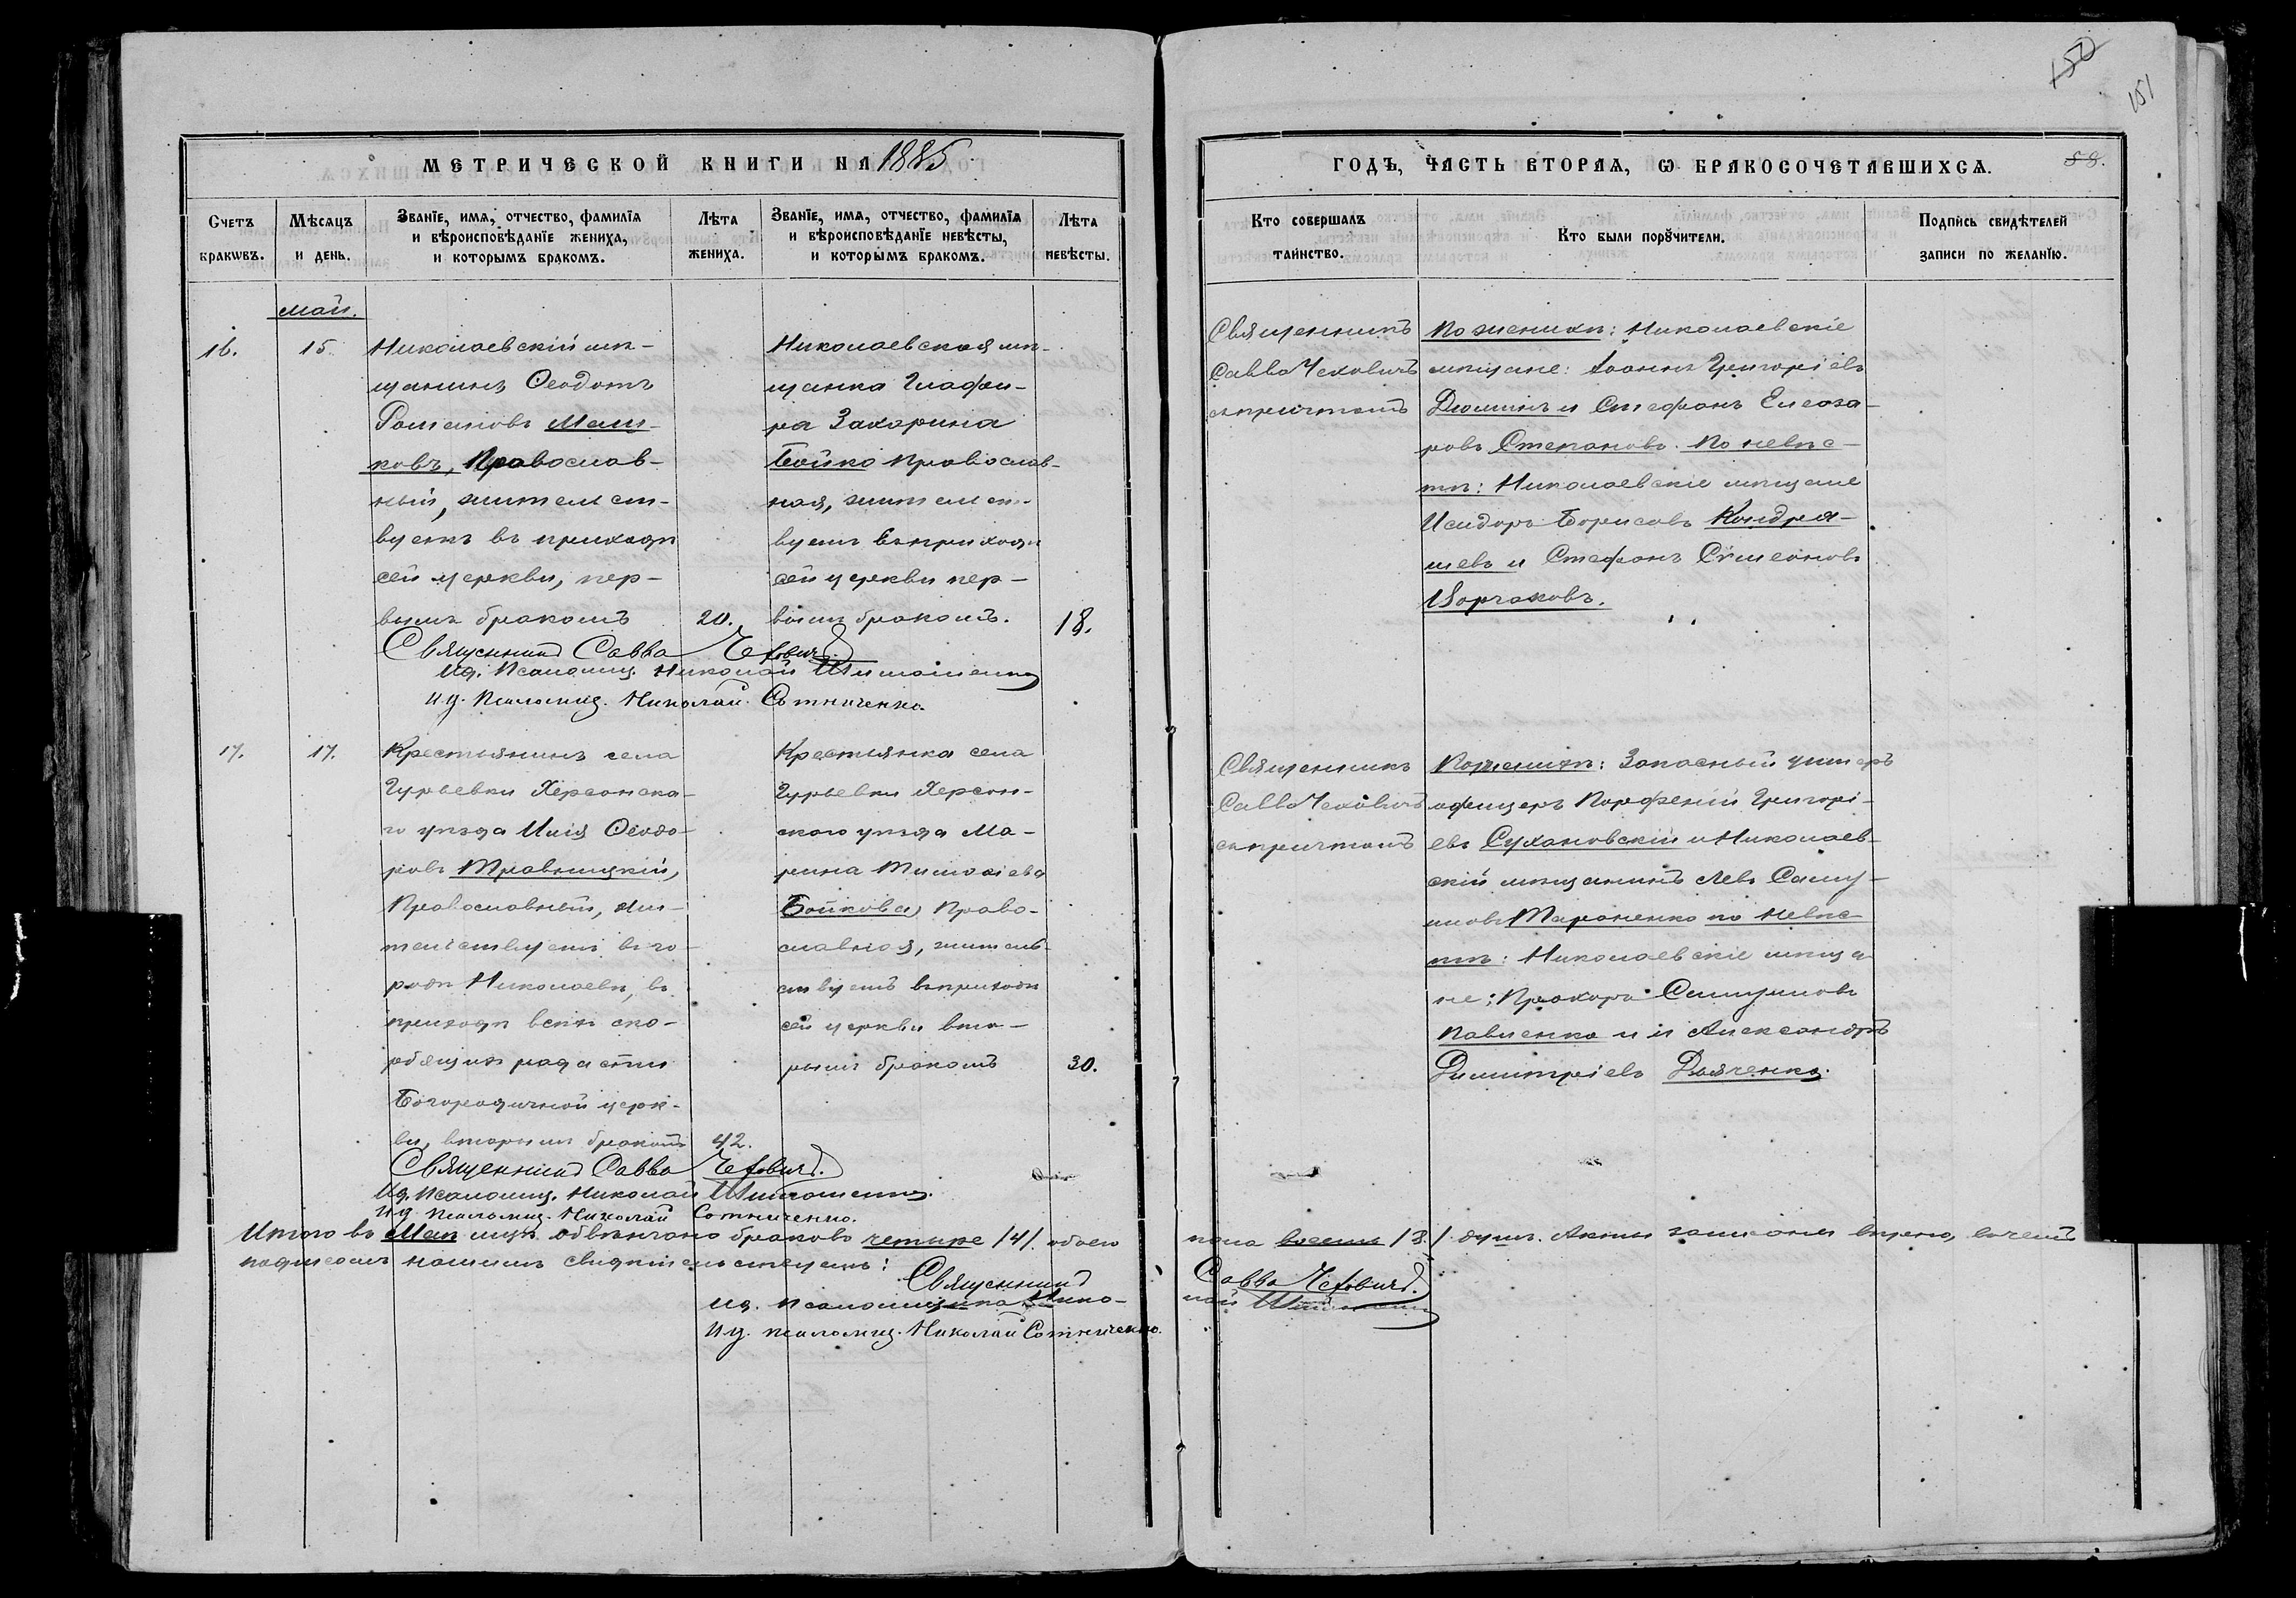 150
151
МЕТРИЧЕСКОЙ КНИГИ НА 1885
ГОДЪ, ЧАСТЬ ВТОРАЯ, Ѡ БРАКОСОЧЕТАВШИХСЯ.
58.
Счетъ браквъ.
Мѣсяцъ и день.
Званїе, имя, отчество, фамилїя
и вѣроисповѣданїе жениха,
и которымъ бракомъ.
Лѣта
жениха.
Званїе, имя, отчество, фамилїя
и вѣроисповѣданїе невѣсты,
и которымъ бракомъ.
Лѣта
невѣсты.
Кто совершалъ
таинство.
Кто были порꙋчители.
Подпись свидѣтелей
записи по желанїю.
май.
16.
15.
Николаевскій мѣ-
щанинъ Ѳеодотъ
Романовъ
ковъ, Православ-
ный, жительст-
вуетъ въ приходѣ
сей церкви, пер-
вымъ бракомъ
20.
Николаевская мѣ-
щанка Глафи-
ра Захарина
Бойко Православ-
ная, жительст-
вуетъ въ приходѣ
сей церкви пер-
вымъ бракомъ.
18.
Священникъ
Савва Чехович
съ причтомъ
По женихѣ: Николаевскіе
мѣщане: Іоаннъ Григоріевъ
Дюминъ и Стефанъ Елеаза-
ровъ Степановъ. По невѣс-
тѣ: Николаевскіе мѣщане
Исидоръ Борисовъ Кондра-
шевъ и Стефанъ Сѵмеоновъ
Священникъ Савва Чеховичъ.
Ид. Псаломщ. Николай
И д. Псаломщ. Николай Сотниченко.
17.
17.
Крестьянинъ села
Гурьевки Херсонска-
го уѣзда Илія Ѳеодо-
ровъ Травницкій,
Православный, жи-
тельствуетъ въ го-
родѣ Николаевѣ, въ
приходѣ всѣхъ ско-
рбящихъ радости
Богородичной церк-
ви, вторымъ бракомъ
42.
Крестьянка села
Гурьевки Херсон-
скаго уѣзда Ма-
рина Тимоѳіева
Бойкова, Право-
славная, житель-
ствуетъ въ приходѣ
сей церкви вто-
рымъ бракомъ
30.
Священникъ
Савва Чеховичъ
съ причтомъ
По женихѣ: Запасный унтеръ
офицеръ Порфирій Григорі-
евъ Сухановскій и Николаев-
скій мѣщанинъ Левъ Саму-
иловъ Тараненко по невѣс-
тѣ: Николаевскіе мѣща-
не: Прохоръ Самуиловъ
Павленко и и Александръ
Димитріевъ Дьяченко.
Священникъ Савва Чеховичъ.
Ид. Псаломщ. Николай
И д. Псаломщ. Николай Сотниченко.
Итого въ Маѣ мцѣ обвѣнчано браковъ четыре /4/. обоего
пола восемь /8./ душъ. Акты записаны вѣрно, въ чемъ
подписомъ нашимъ свидѣтельствуемъ:
Священникъ
Савва Чеховичъ.
Ид. Псаломщика Нико-
лай
И д. псаломщ. Николай Сотниченко.